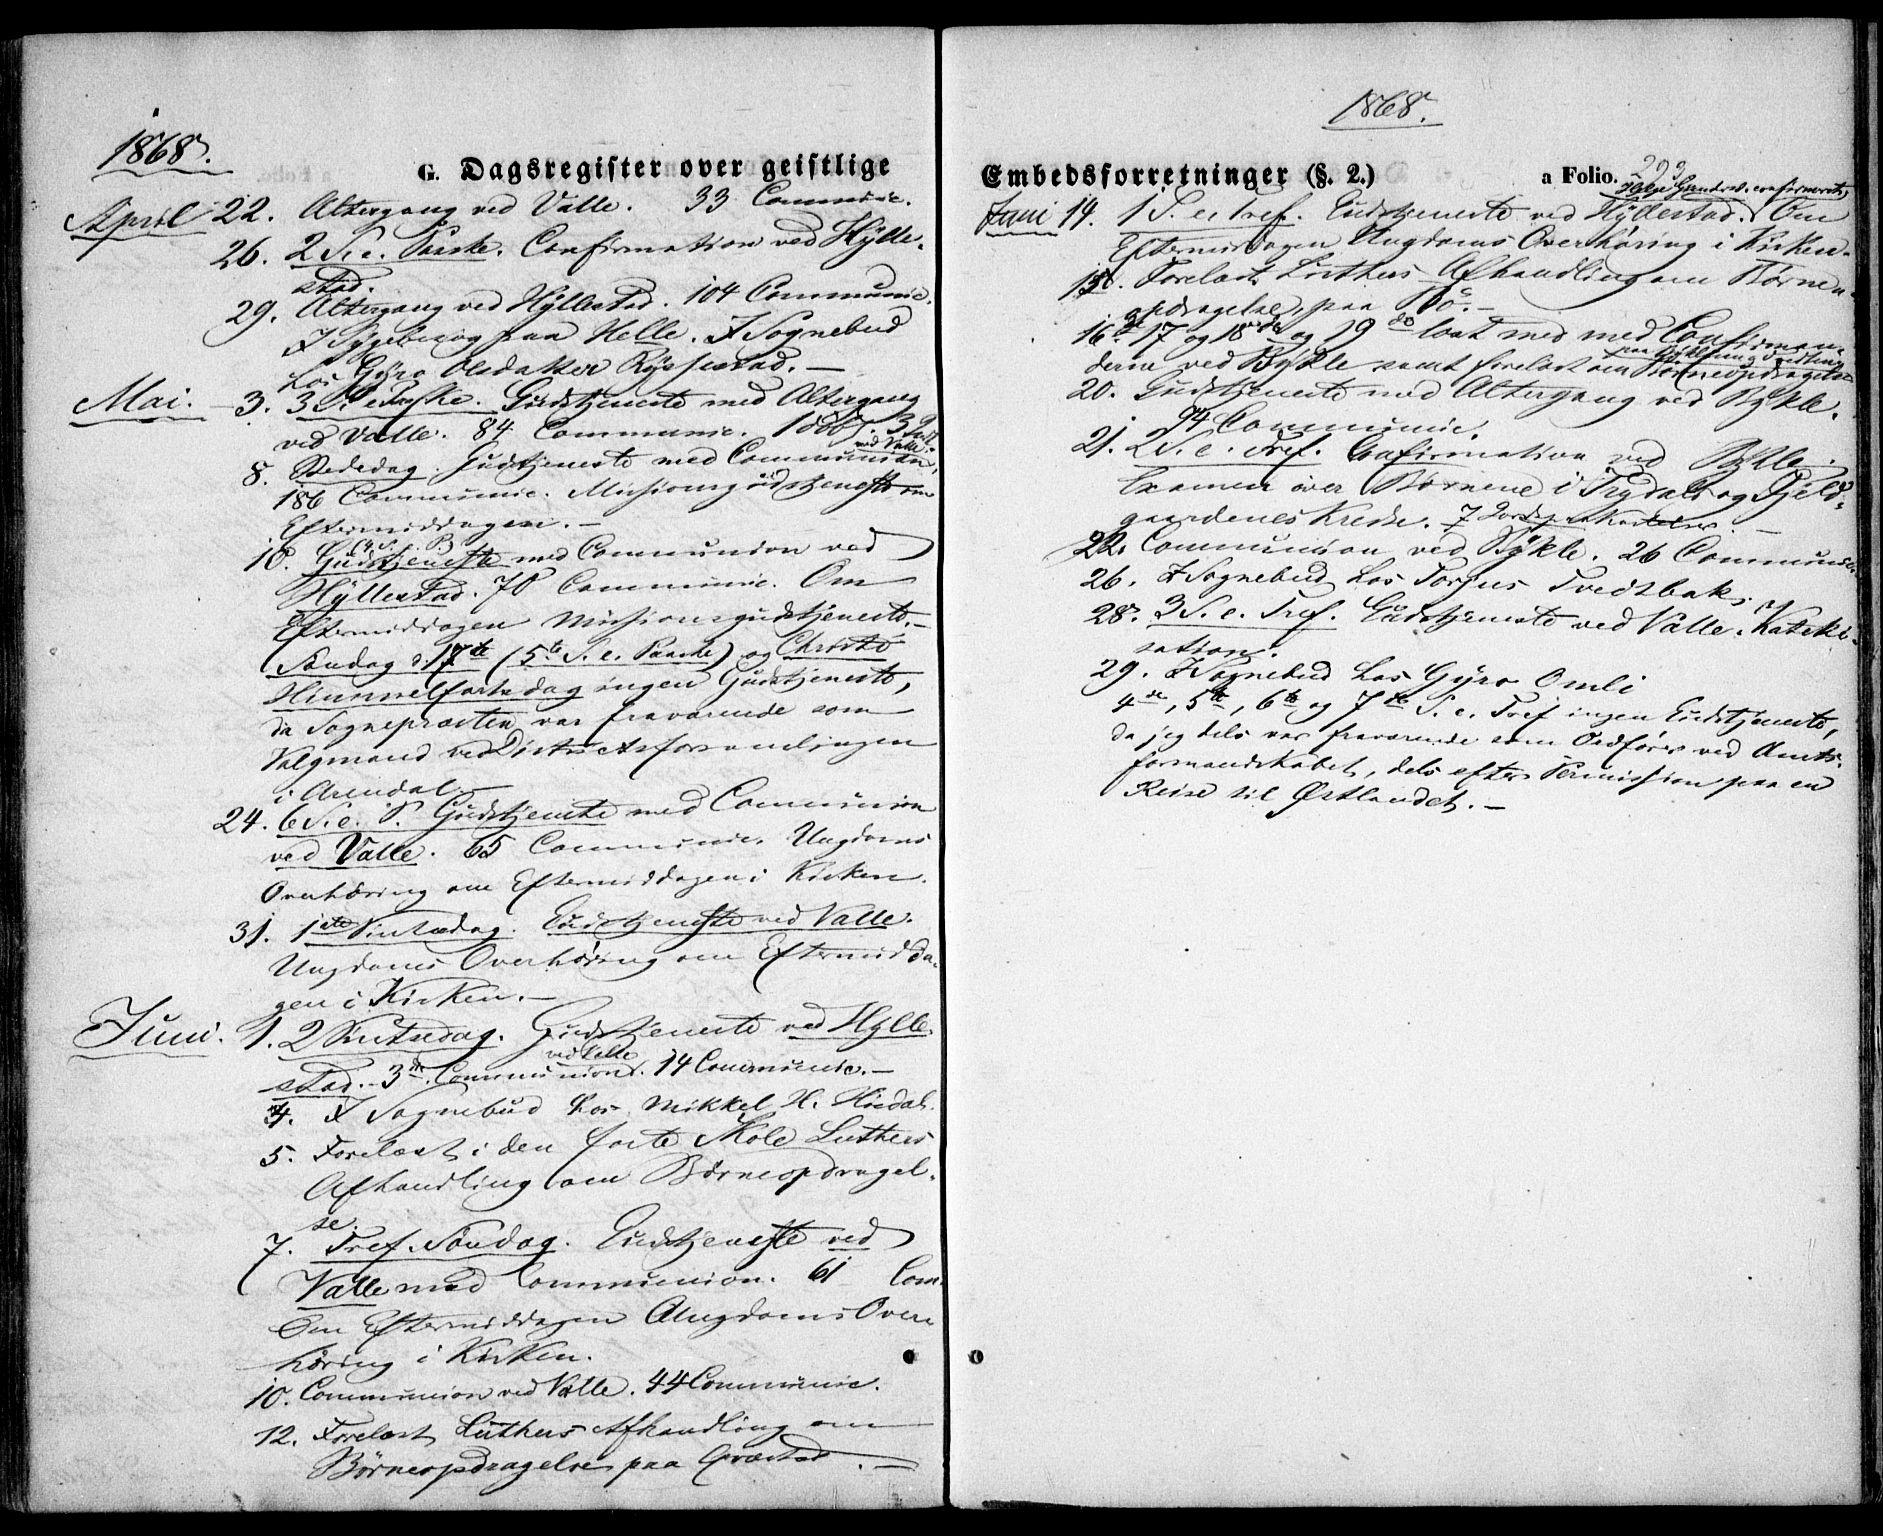 1868.
G. Dagsregister over geistlige
April 22. Altergang ved Valle. 33 Communic.
26. 2 S. e. Paaske. Confirmation ved Hylle-
stad.
29. Altergang ved Hyllestad. 104 Communic.
I Sygebesøg paa Helle. I Sognebud
hos Gyro Olsdatter Rysstad. —
Mai. 3. 3 S. e. Paaske. Gudstjeneste med Altergang
ved Valle. 84 Communic.
8. Bededag. Gudstjeneste med Communion ved Valle.
186 Communic. Missionsgudstjeneste om
Eftermiddagen. —
(4 S. e. P.)
10. Gudstjeneste med Communion ved
Hyllestad. 70 Communic. Om
Eftermiddagen Missionsgudstjeneste. —
Søndag d. 17de (5te S. e. Paaske) og Christi
Himmelfartsdag ingen Gudstjeneste,
da Sognepræsten var fraværende som
Valgmand ved Districtsforsamlingen
i Arendal. —
24. 6 S. e. P. Gudstjeneste med Communion
ved Valle. 65 Communic. Ungdoms
Overhøring om Eftermiddagen i Kirken.
31. 1ste Pintsedag. Gudstjeneste ved Valle.
Ungdoms Overhøring om Eftermidda-
gen i Kirken. —
Juni. 1. 2 Pintsedag. Gudstjeneste ved Hylle-
stad. 3de Communion ved Valle. 14 Communic. —
4. I Sognebud hos Mikkel H. Homdal.
5. Forelæst i den faste Skole Luthers
Afhandling om Børneopdragel-
se.
7. Tref. Søndag. Gudstjeneste ved
Valle med Communion. 61 Com.
Om Eftermiddagen Ungdoms Over-
høring i Kirken.
10. Communion ved Valle. 44 Communic.
12. Forelæst Luthers Afhandling om
Børneopdragelse paa
1868.
Embedsforretninger (§. 2.) a Folio. 293
confirmeret.
Juni 14. 1 S. e. Tref. Gudstjeneste ved Hyllestad. Om
Eftermiddagen Ungdoms Overhøring i Kirken.
15. Forelæst Luthers Afhandling om Børne-
opdragelse paa
16de 17 og 18de og 19de læst med med Confirman-
derne ved Bykle samt forelæst om Børneopdragelse
20. Gudstjeneste med Altergang ved Bykle.
94 Communic.
21. 2 S. e. Tref. Confirmation ved Bykle.
Examen over Børnene i Trydals og Fjeld-
gaardenes Kredse.
22. Communion ved Bykle. 26 Communic.
26. I Sognebud hos Torjus Tvedtbak.
28. 3 S. e. Tref. Gudstjeneste ved Valle. Kateki-
sation.
29. I Sognebud hos Gyro Omli
4de, 5te, 6te og 7de S. e. Tref ingen Gudstjeneste,
da jeg dels var fraværende som Ordfører ved Amts-
formandskabet, dels efter Permission paa en
Reise til Østlandet. —